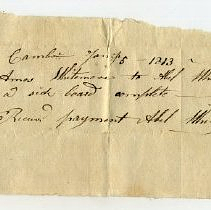 Jany 5 1813
Amos Whitemore to Abel
a side board complete
Receivd payment Abel